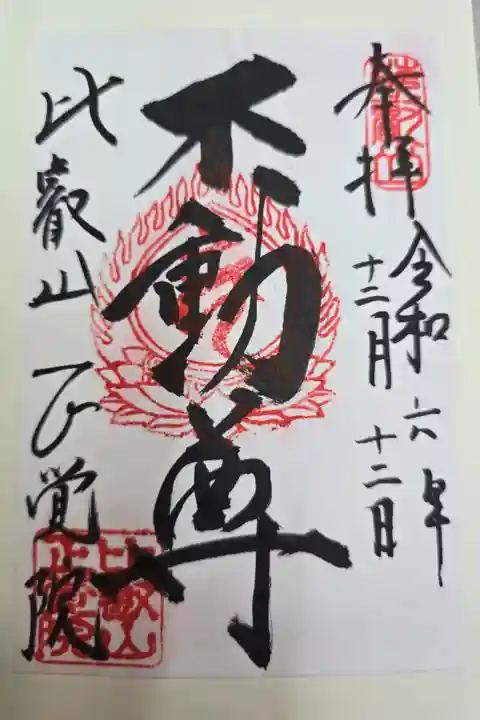 奉拝
令和六年
十二月十二日
不動尊
比叡山正覚院